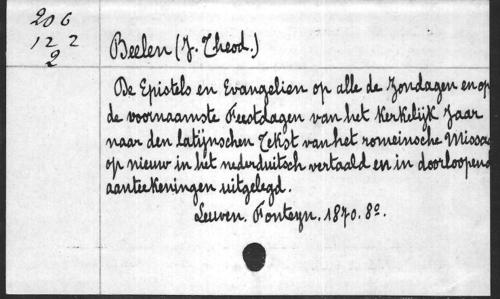 206
122
2
Beelen (J. Theod.)
De Epistels en Evangelien op alle de Zondagen en op
de voornaamste Feestdagen van het Kerkelijk Jaar
naar den latijnschen Tekst van het romeinsche Missa
op nieuw in het nederduitsch vertaald en in doorloopend
aanteekeningen uitgelegd.
Leuven. Fonteyn. 1870. 8º.